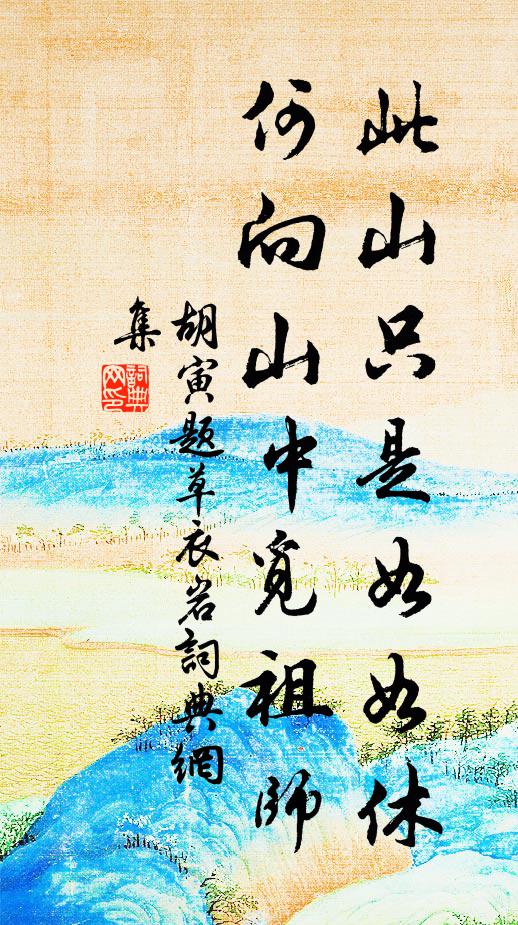 此山只是如如休
何向山中覓祖師
胡寅题草衣岩詞典網
集
詞典
网印